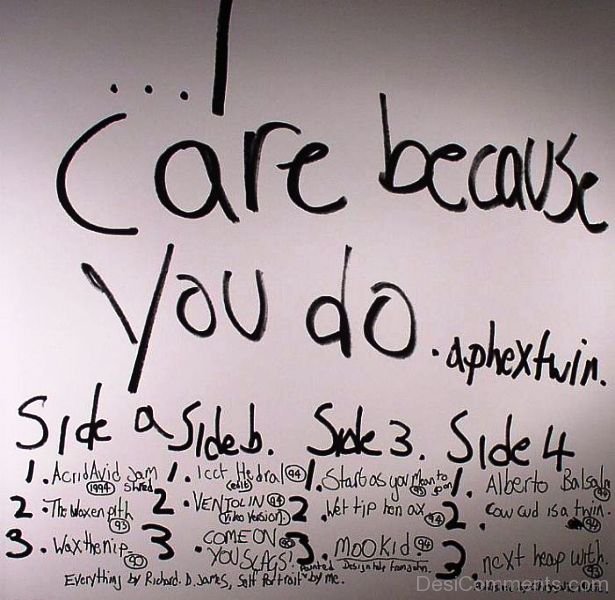 ...I
Care because
you do.
.aphextwin.
Side a
1. Acrid Avid Jam
1994 Shred
2. The Waxen pith
93
3. Wax the nip
90
Side b.
1. Icct Hedral 94
(edit)
2. VENTOLIN 94
(Video Version)
3 COME ON 90
YOU SLAGS!
Side 3.
1. Start as you Mean to
95 go on
2. Wet tip hen ax. 94
3. Mookid. 94
Side 4
1. Alberto Balsalm
2. Cow cud is a twin.
94
3 next heap with.
93
Everything by Richard. D. James, Self Portrait painted by me.
Design help from John.
DesiComments.com